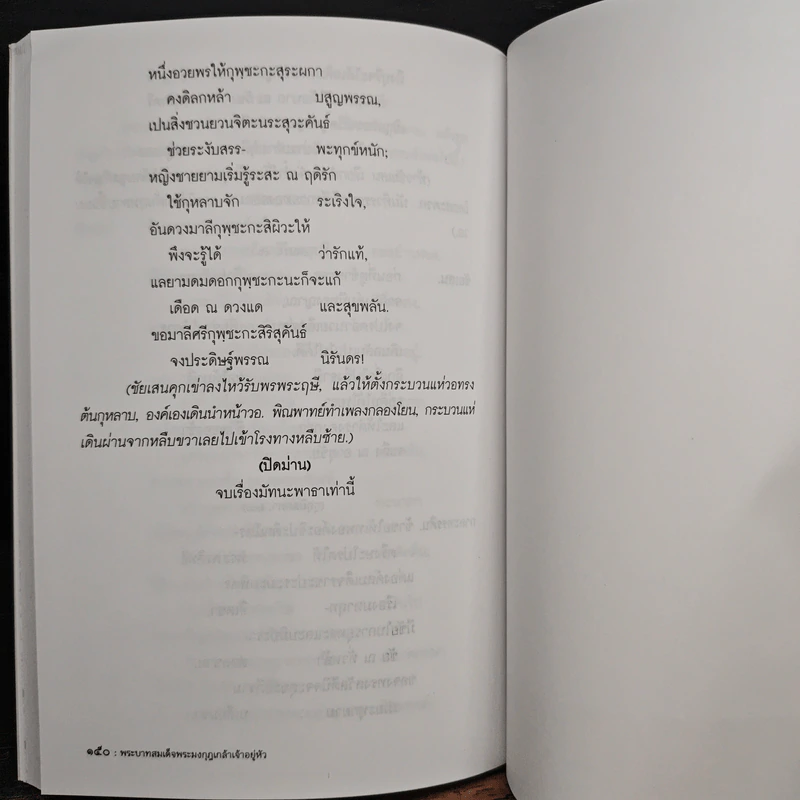 หนึ่งอวยพรให้กุพฺชะกะสุระผกา
คงดิลกหล้า บสูญพรรณ,
เปนสิ่งชวนยวนจิตะนระสุวะคันธ์
ช่วยระงับสรร- พะทุกข์หนัก;
หญิงชายยามเริ่มรู้ระสะ ณ ฤดิรัก
ใช้กุหลาบจัก ระเริงใจ,
อันดวงมาลีกุพฺชะกะสิผิวะให้
พึงจะรู้ได้ ว่ารักแท้,
แลยามดมดอกกุพฺชะกะนะก็จะแก้
เดือด ณ ดวงแด และสุขพลัน.
ขอมาลีศรีกุพฺชะกะสิริสุคันธ์
จงประดิษฐ์พรรณ นิรันดร!
(ชัยเสนคุกเข่าลงไหว้รับพรพระฤษี, แล้วให้ตั้งกระบวนแห่วอทรง
ต้นกุหลาบ, องค์เองเดินนำหน้าวอ. พิณพาทย์ทำเพลงกลองโยน, กระบวนแห่
เดินผ่านจากหลืบขวาเลยไปเข้าโรงทางหลืบซ้าย.)
(ปิดม่าน)
จบเรื่องมัทนะพาธาเท่านี้
๑๕๐ : พระบาทสมเด็จพระมงกุฎเกล้าเจ้าอยู่หัว